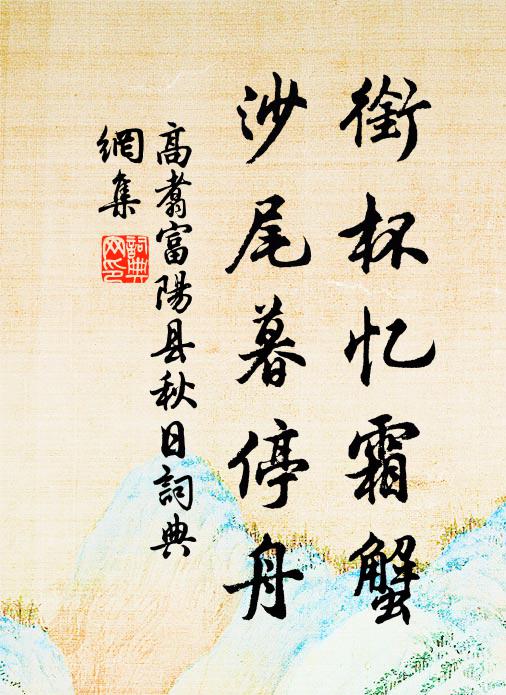 衔杯忆霜蟹
沙尾暮停舟
高翥富陽县秋日詞典
網集
詞典
网印